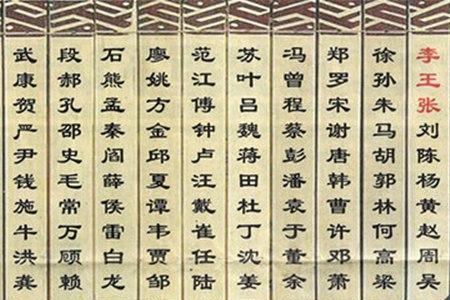 李王张刘陈杨黄赵周吴
徐孙朱马胡郭林何高梁
郑罗宋谢唐韩曹许邓萧
冯曾程蔡彭潘袁于董余
苏叶吕魏蒋田杜丁沈姜
范江傅钟卢汪戴崔任陆
廖姚方金邱夏谭韦贾邹
石熊孟秦阎薛侯雷白龙
段郝孔邵史毛常万顾赖
武康贺严尹钱施牛洪龚